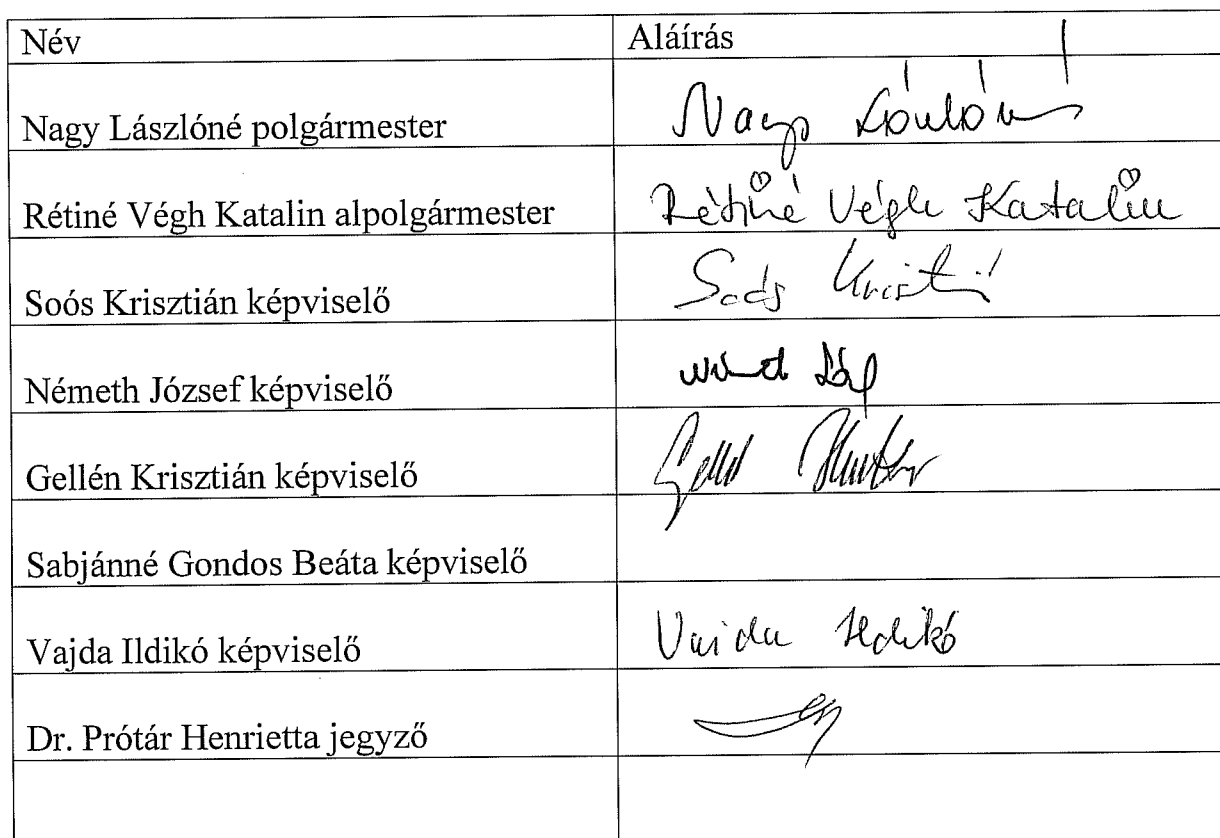 Név Aláírás
Nagy Lászlóné polgármester Nagy Lászlóné
Rétiné Végh Katalin alpolgármester Rétiné Végh Katalin
Soós Krisztián képviselő Soós Kriszti
Németh József képviselő
Gellén Krisztián képviselő
Sabjánné Gondos Beáta képviselő
Vajda Ildikó képviselő Vajda Ildikó
Dr. Prótár Henrietta jegyző